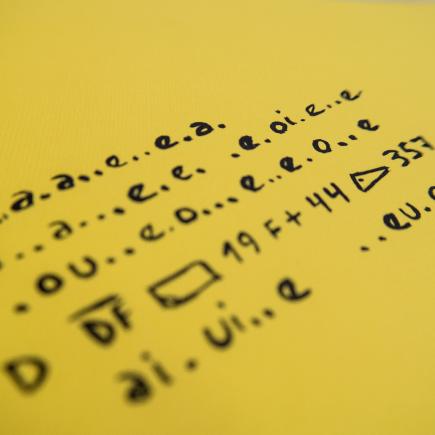 ..a.a..e..e.a.
..a...e.e. .e.oi.e..e
.ou..e.o...e..e.o..e
D DF 19 F + 44 357
ai.ui..e ..eu.